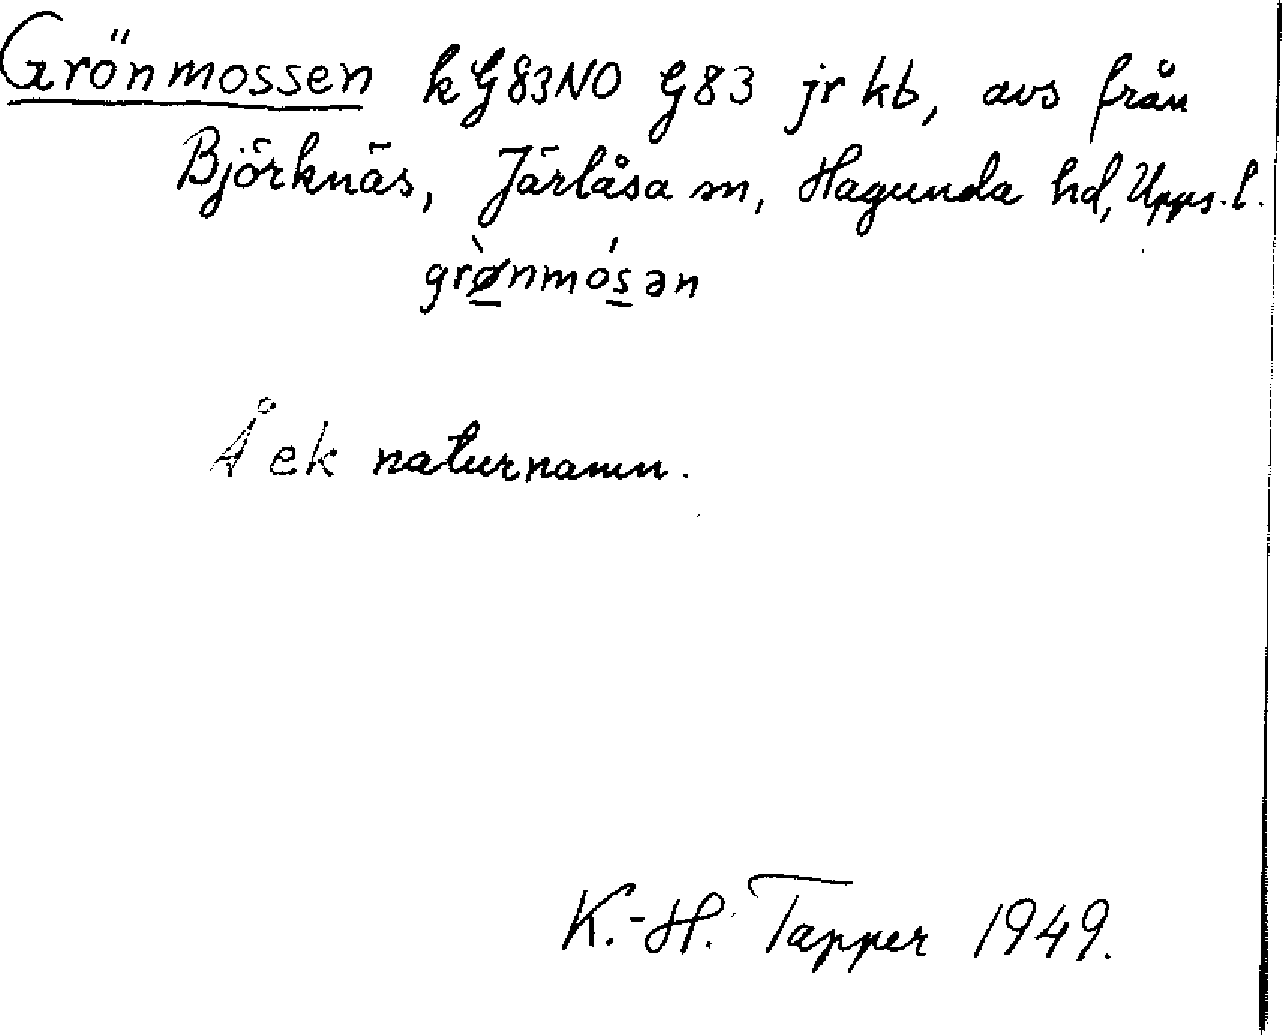 Grönmossen k G83NO G83 jr kb, avs från
Björknäs, Järlåsa sn, Hagunda hd, Upps. l.
grø̀nmósən
Å ek naturnamn.
K.-H. Tapper 1949.